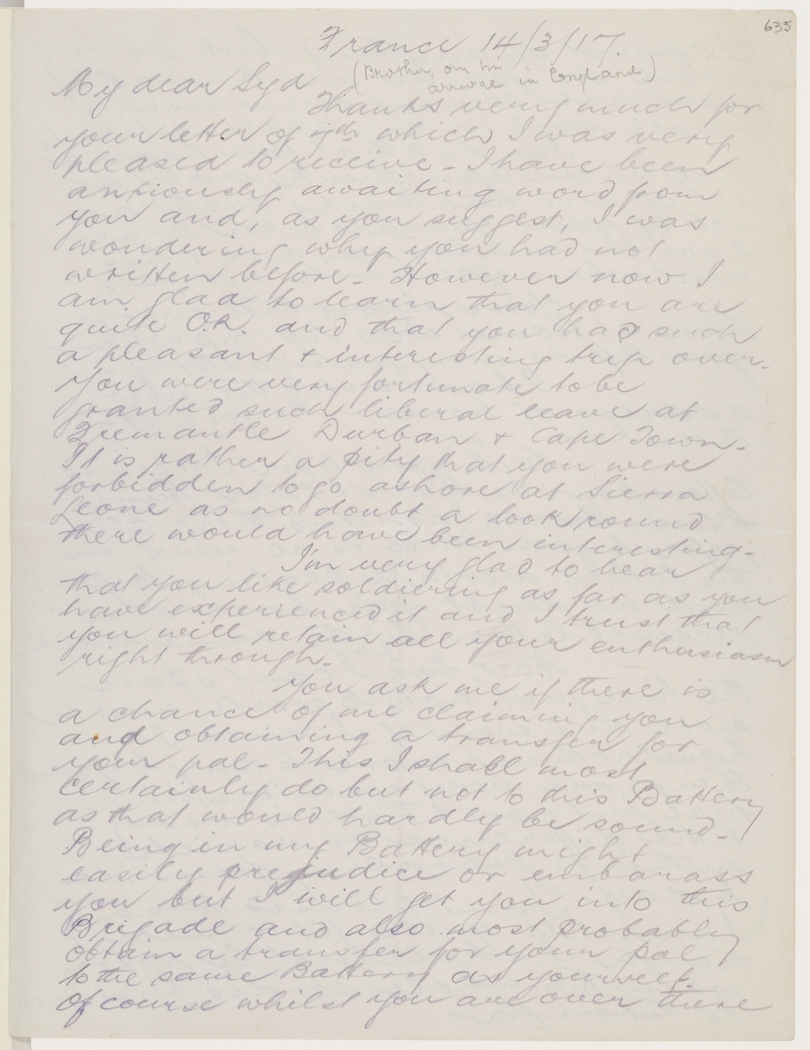 635
France 14/3/17.
(Brother, on his
arrival in England)
My dear Syd
Thanks very much for
your letter of 7th which I was very
pleased to receive - I have been
anxiously awaiting word from
you and, as you suggest, I was
wondering why you had not
written before. However now I
am glad to learn that you are
quite O.K. and that you had such
a pleasant & interesting trip over.
You were very fortunate to be
granted such liberal leave at
Fremantle Durban & Cape Town.
It is rather a pity that you were
forbidden to go ashore at Sierra
Leone as no doubt a look round
there would have been interesting.
I'm very glad to hear
that you like soldiering as far as you
have experienced it and I trust that
you will retain all your enthusiasm
right through.
You ask me if there is
a chance of me claiming you
and obtaining a transfer for
your pal - This I shall most
certainly do but not to this Battery
as that would hardly be sound.
Being in my Battery might
easily prejudice or embarass
you but I will get you into this
Brigade and also most probably
obtain a transfer for your pal
to the same Battery as yourself.
Of course whilst you are over there